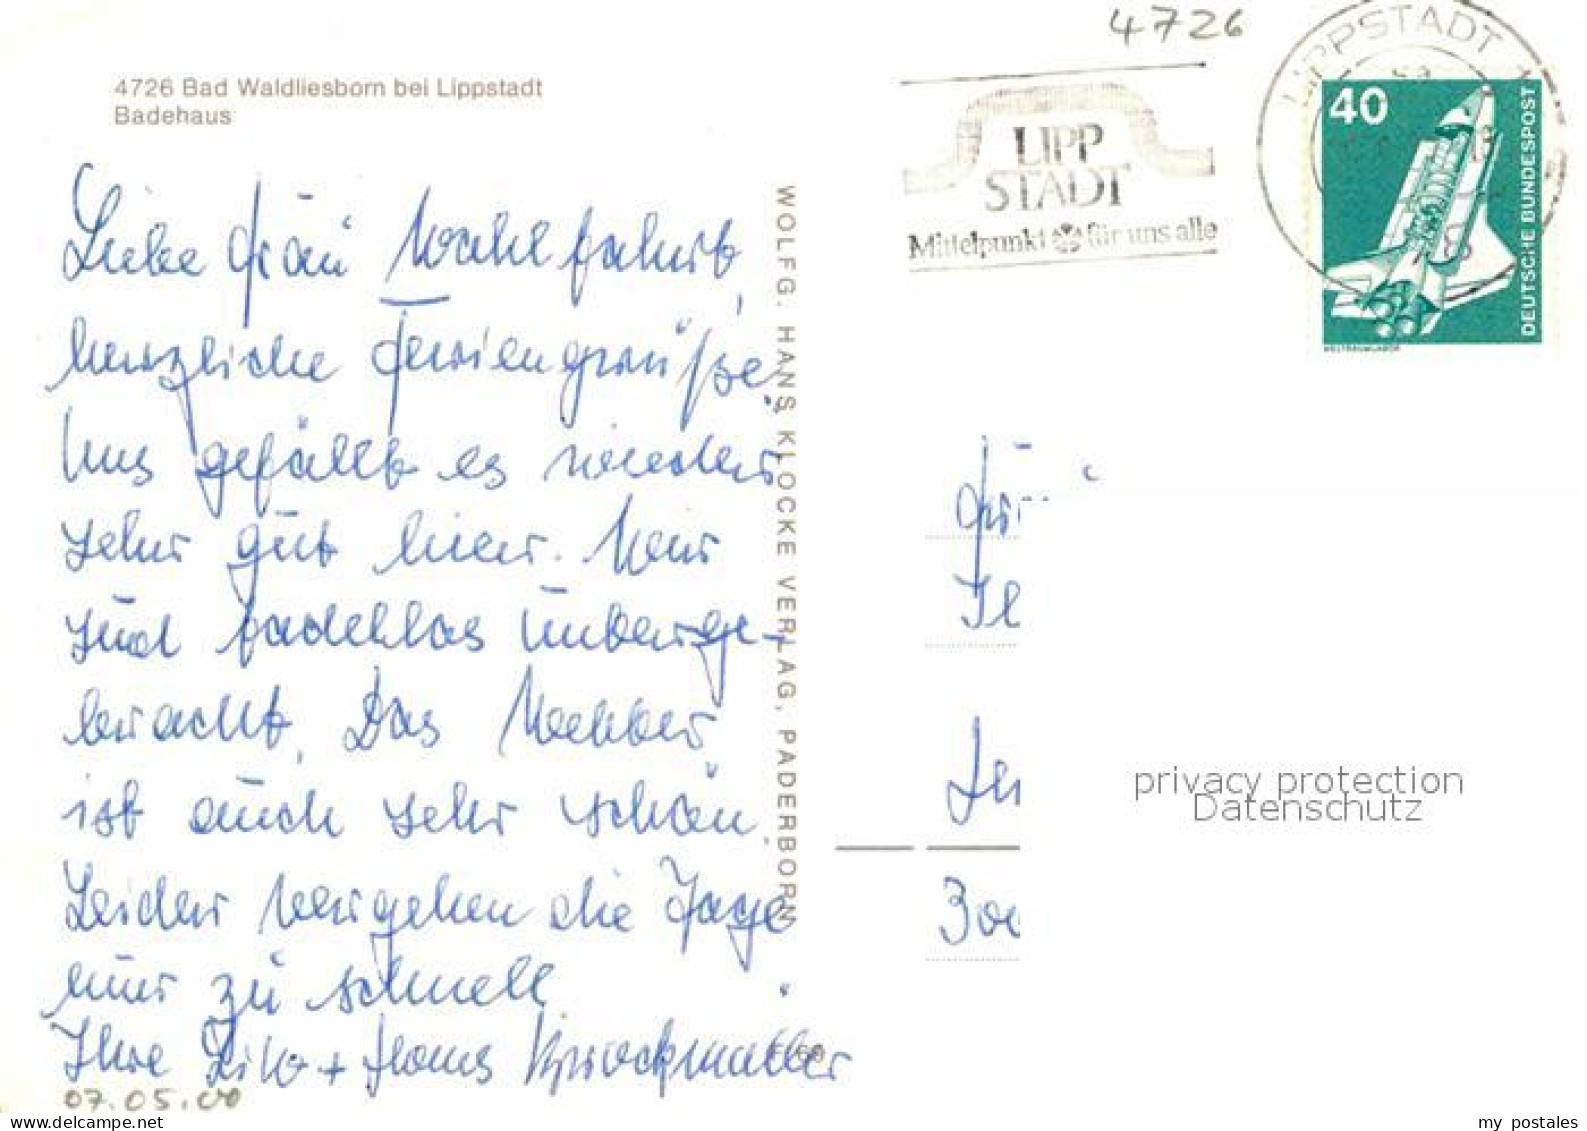 4726
4726 Bad Waldliesborn bei Lippstadt
Badehaus
LIPPSTADT 1
LIPP
STADT
Mittelpunkt für uns alle
40
DEUTSCHE BUNDESPOST
WELTRAUMLABOR
Liebe Frau Wohlfahrt,
herzliche Feriengrüße.
Uns gefällt es wieder
sehr gut hier. Wir
sind tadellos unterge-
bracht. Das Wetter
ist auch sehr schön.
Leider vergehen die Tage
nur zu schnell.
Ihre + Hans
07.05.00
WOLFG. HANS KLOCKE VERLAG, PADERBORN
privacy protection
Datenschutz
my postales